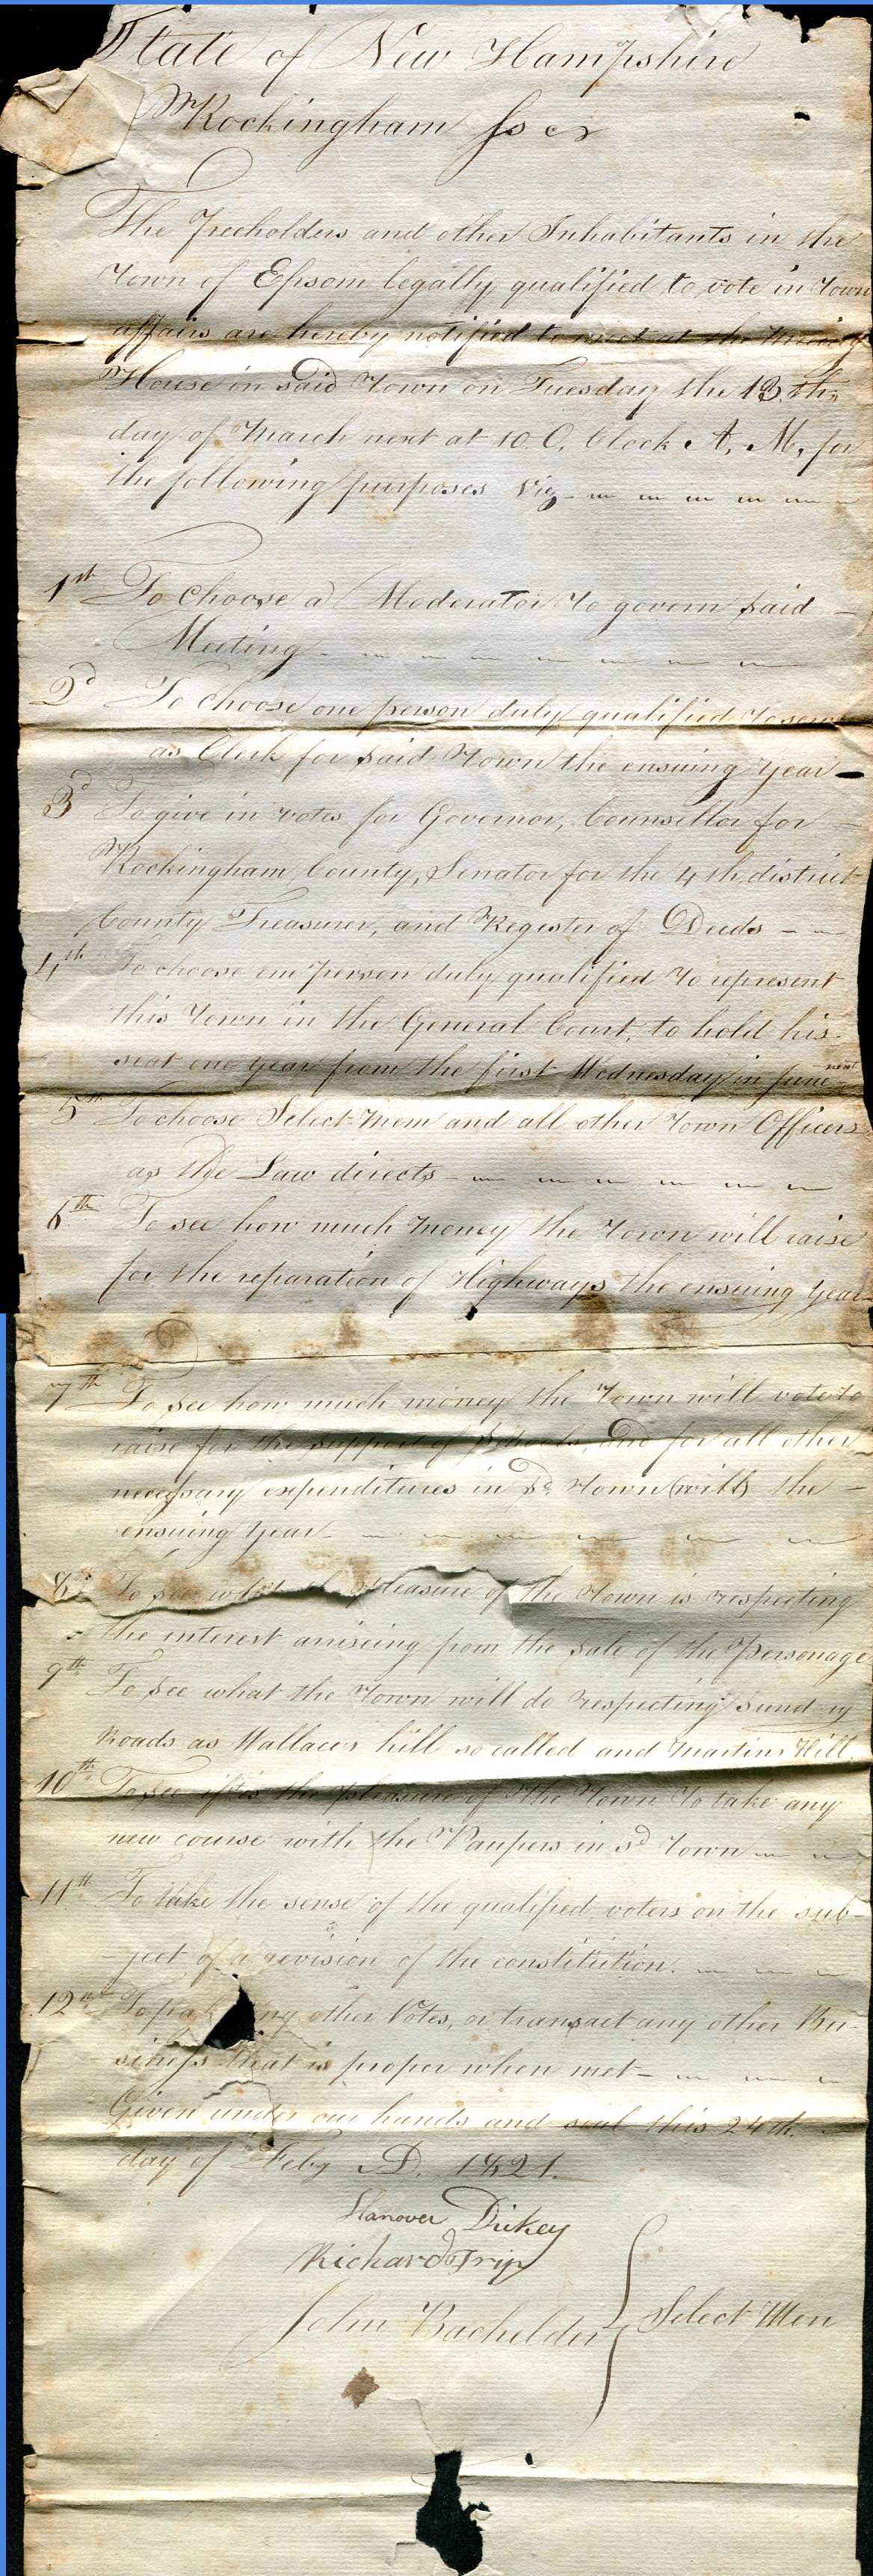 State of New Hampshire
Rockingham Ss
The Freeholders and other Inhabitants in the
Town of Epsom legally qualified to vote in Town
affairs are hereby notified to meet at the Meeting
House in said Town on Tuesday the 13th
day of March next at 10 O, Clock A, M, for
the following purposes Viz
1st To choose a Moderator to govern said
Meeting
2d To choose one person duly qualified to serve
as Clerk for said Town the ensuing year
3d To give in votes for Governor, Counsellor for
Rockingham County, Senator for the 4th district
County Treasurer, and Register of Deeds
4th To choose one person duly qualified to represent
this Town in the General Court, to hold his
seat one year from the first Wednesday in June next
5th To choose Select Men and all other Town Officers
as the Law directs
6th To see how much money the Town will raise
for the reparation of Highways the ensuing year
7th To see how much money the Town will vote to
raise for the support of Schools, and for all other
necessary expenditures in sd Town (with) the
ensuing year
8th To see what the pleasure of the Town is respecting
the interest ariseing from the sale of the Personage
9th To see what the Town will do respecting sundry
Roads as Wallaces hill so called and Martins Hill
10th To see if tis the pleasure of the Town to take any
new course with the Paupers in sd Town
11th To take the sense of the qualified voters on the sub-
-ject of a revision of the constitution.
12th To pass any other Votes, or transact any other Bu-
siness that is proper when met
Given under our hands and seal this 24th
day of Feby AD. 1821.
Hanover Dickey
Richard Tripp
John Bachelder
Select Men